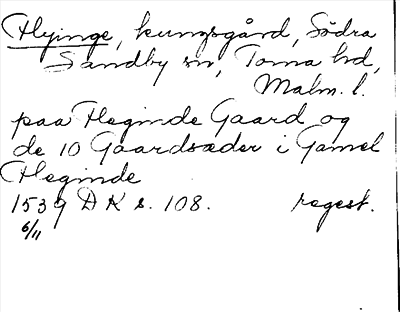 Flyinge, kungsgård, Södra
Sandby sn, Torna hd,
Malm. l.
paa Fleginde Gaard og
de 10 Gaardsæder i Gamel
Fleginde
1539 DK s. 108. regest.
6/11